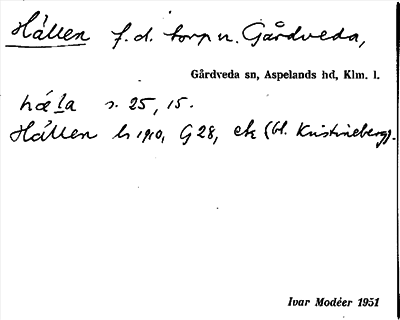 Hållen f.d. torp u. Gårdveda,
Gårdveda sn, Aspelands hd, Klm. l.
hæla s. 25, 15.
Hållen h 1910, G 28, ek (bl. Kristineberg).
Ivar Modéer 1951